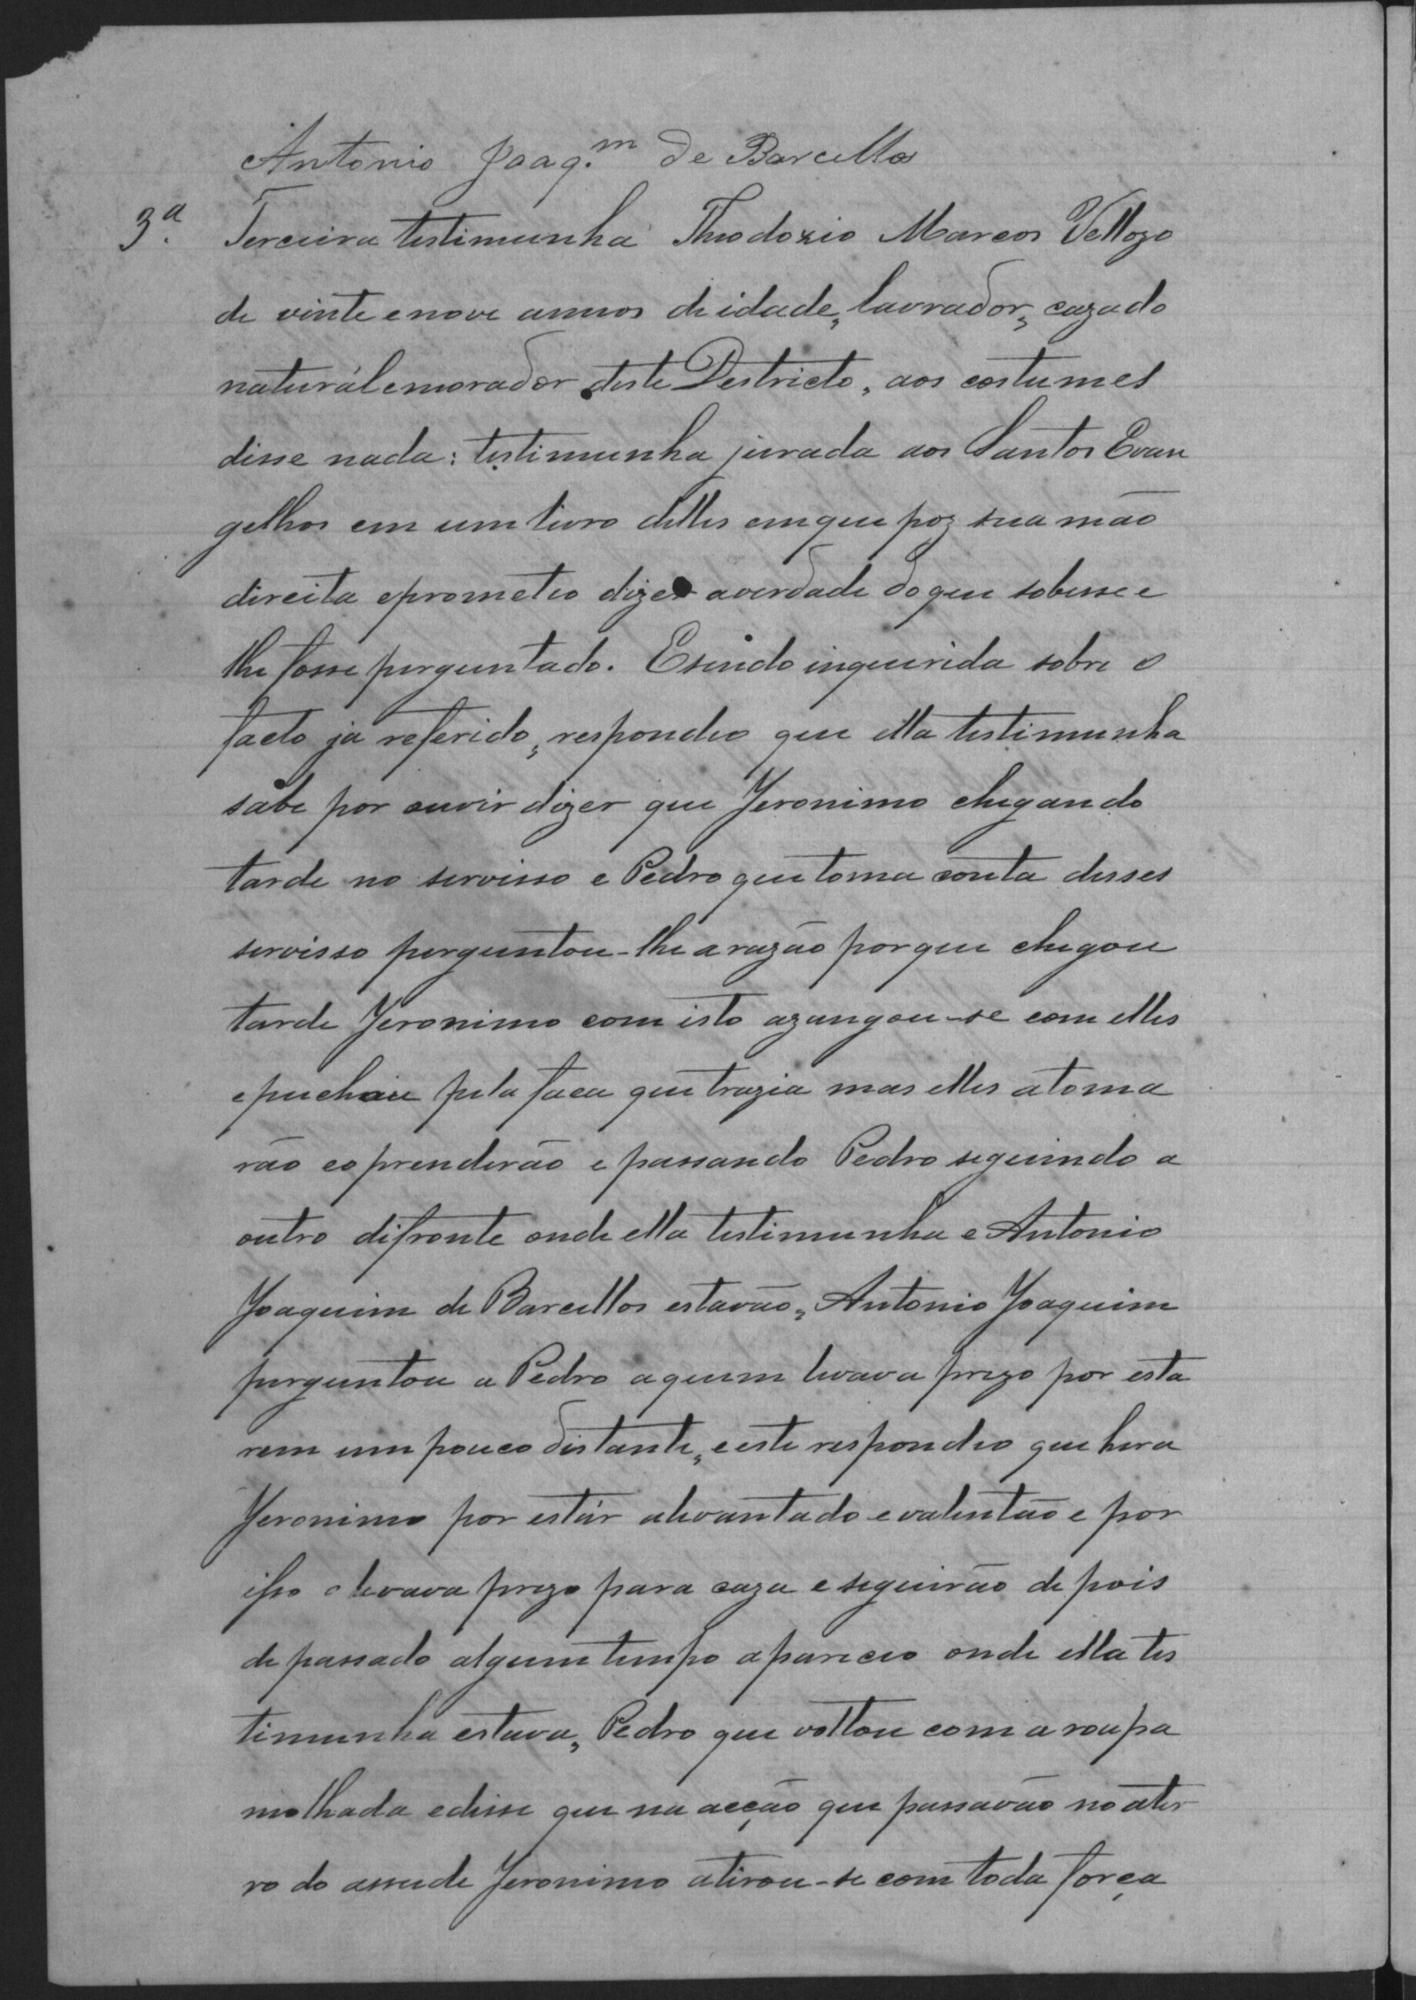 Antonio Joaq.m de Barcellos
3ª. Terceira testimunha Theodozio Marcos Vellozo
de vinte e nove annos de idade, lavrador, cazado
naturál e morador deste Destricto, aos costumes
disse nada: testimunha jurada aos Santos Evan
gelhos em um livro delles em que poz sua mão
direita e prometeo dizer a verdade do que sobesse e
lhe fosse perguntado. E sendo inquerida sobre o
facto já referido, respondeo que ella testimunha
sabe por ouvir dizer que Jeronimo chegando
tarde no servisso e Pedro que toma conta desses
servisso perguntou-lhe a razão porque chegou
tarde Jeronimo com isto azangou-se com elles
e puchou pela faca que trazia mas elles a toma
rão e o prenderão e passando Pedro seguindo a
outro difronte onde ella testimunha e Antonio
Joaquim de Barcellos estavão, Antonio Joaquim
perguntou a Pedro a quem levava prezo por esta
rem um pouco distante, e este respondeo que hera
Jeronimo por estár alevantado e valentão e por
isso o levava prezo para caza e seguirão depois
de passado algum tempo apareceo onde ella tes
timunha estava, Pedro que voltou com a roupa
molhada e disse que na acção que passavão no ater
ro do assude Jeronimo atirou-se com toda força